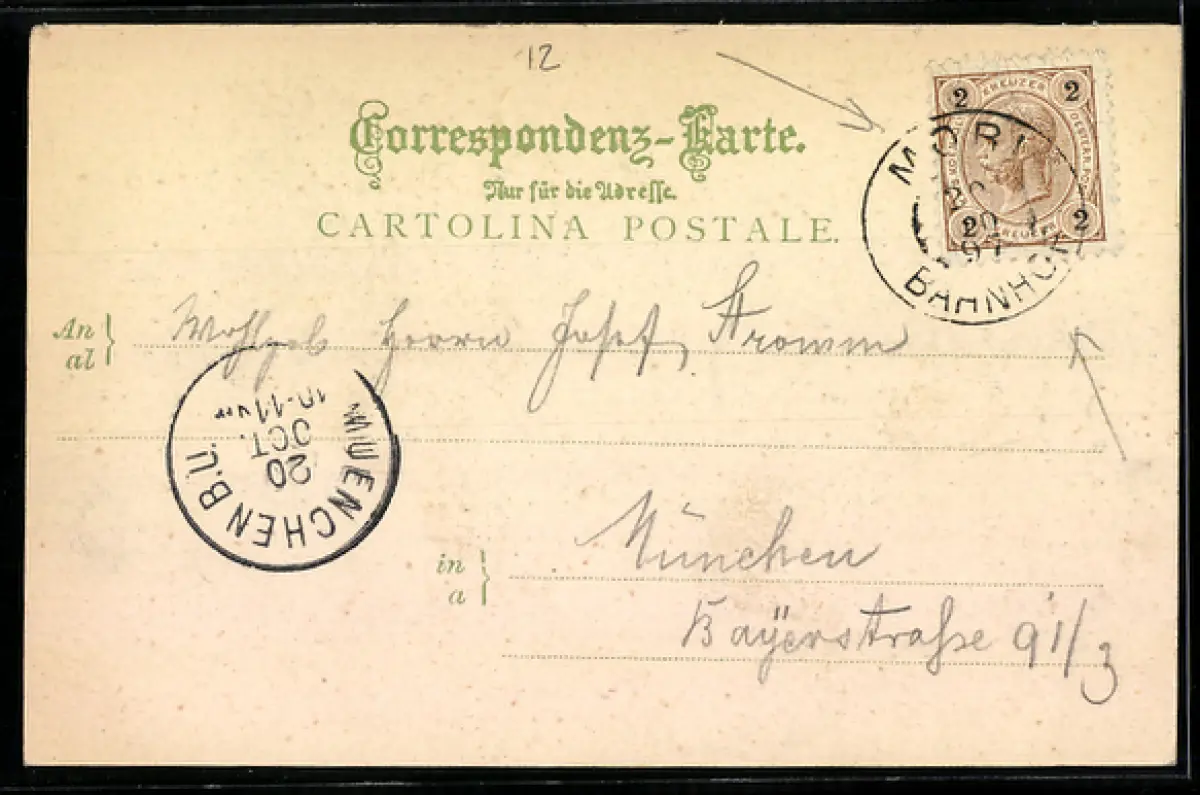 12
Correspondenz-Karte.
Nur für die Adresse.
CARTOLINA POSTALE.
2 KREUZER 2
2 KREUZER 2
MORI
20
97
BAHNHOF
An
al
Wohlgeb Herrn Josef Stromm
MUENCHEN B.Ü.
20
OCT.
10-11
in
a
München
Bayerstraße 91/3